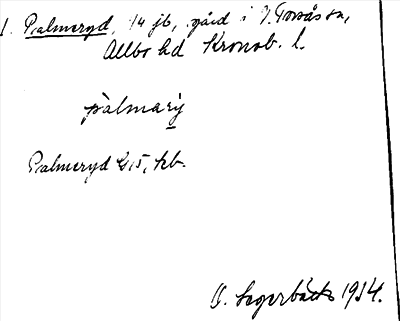 1. Palmeryd, 1/4 jb, gård i V. Torsås sn,
Allbo hd Kronob. l.
pàlmarỳ
Palmeryd G 15, kb.
O. Lagerbäck 1914.